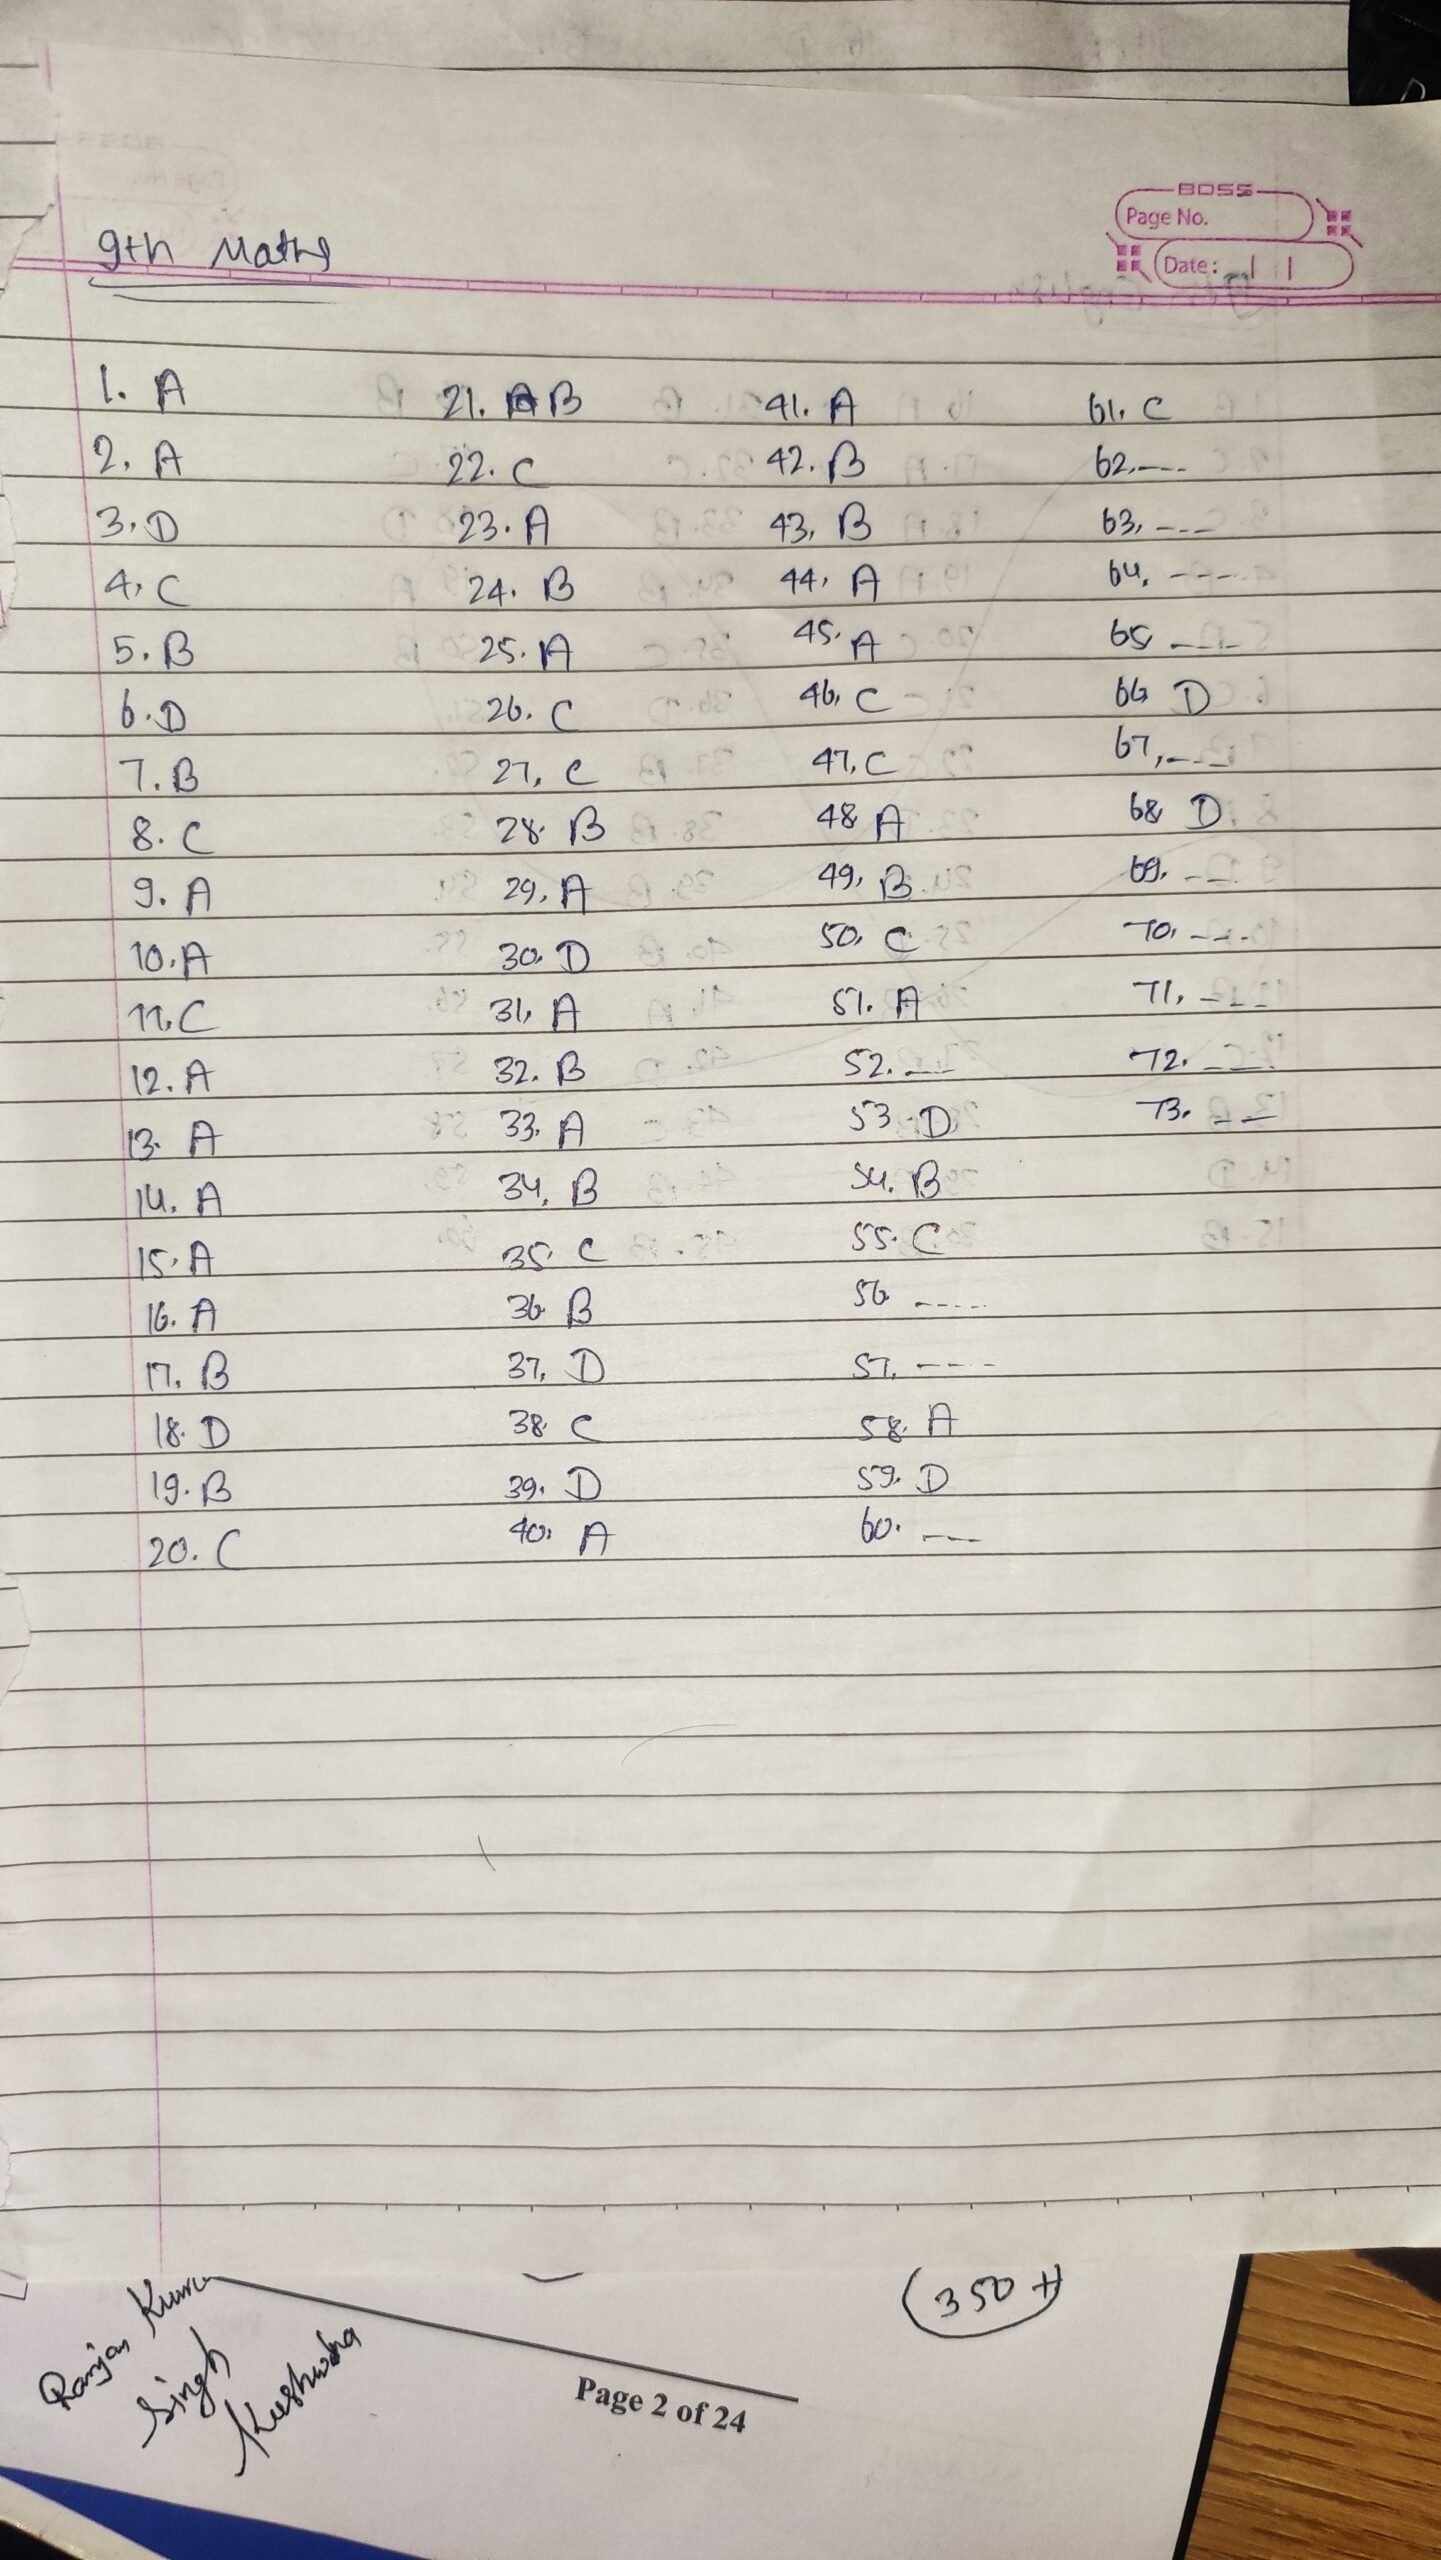 BOSS
Page No.
Date:
9th Maths
1. A
2. A
3. D
4. C
5. B
6. D
7. B
8. C
9. A
10. A
11. C
12. A
13. A
14. A
15. A
16. A
17. B
18. D
19. B
20. C
21. B
22. C
23. A
24. B
25. A
26. C
27. C
28. B
29. A
30. D
31. A
32. B
33. A
34. B
35. C
36. B
37. D
38. C
39. D
40. A
41. A
42. B
43. B
44. A
45. A
46. C
47. C
48. A
49. B
50. C
51. A
52. ---
53. D
54. B
55. C
56. -----
57. ----
58. A
59. D
60. ---
61. C
62. ----
63. ---
64. ----
65. ----
66. D
67. ----
68. D
69. ---
70. ----
71. ----
72. ---
73. ---
Ranjan
Singh
Kushwaha
350 +
Page 2 of 24